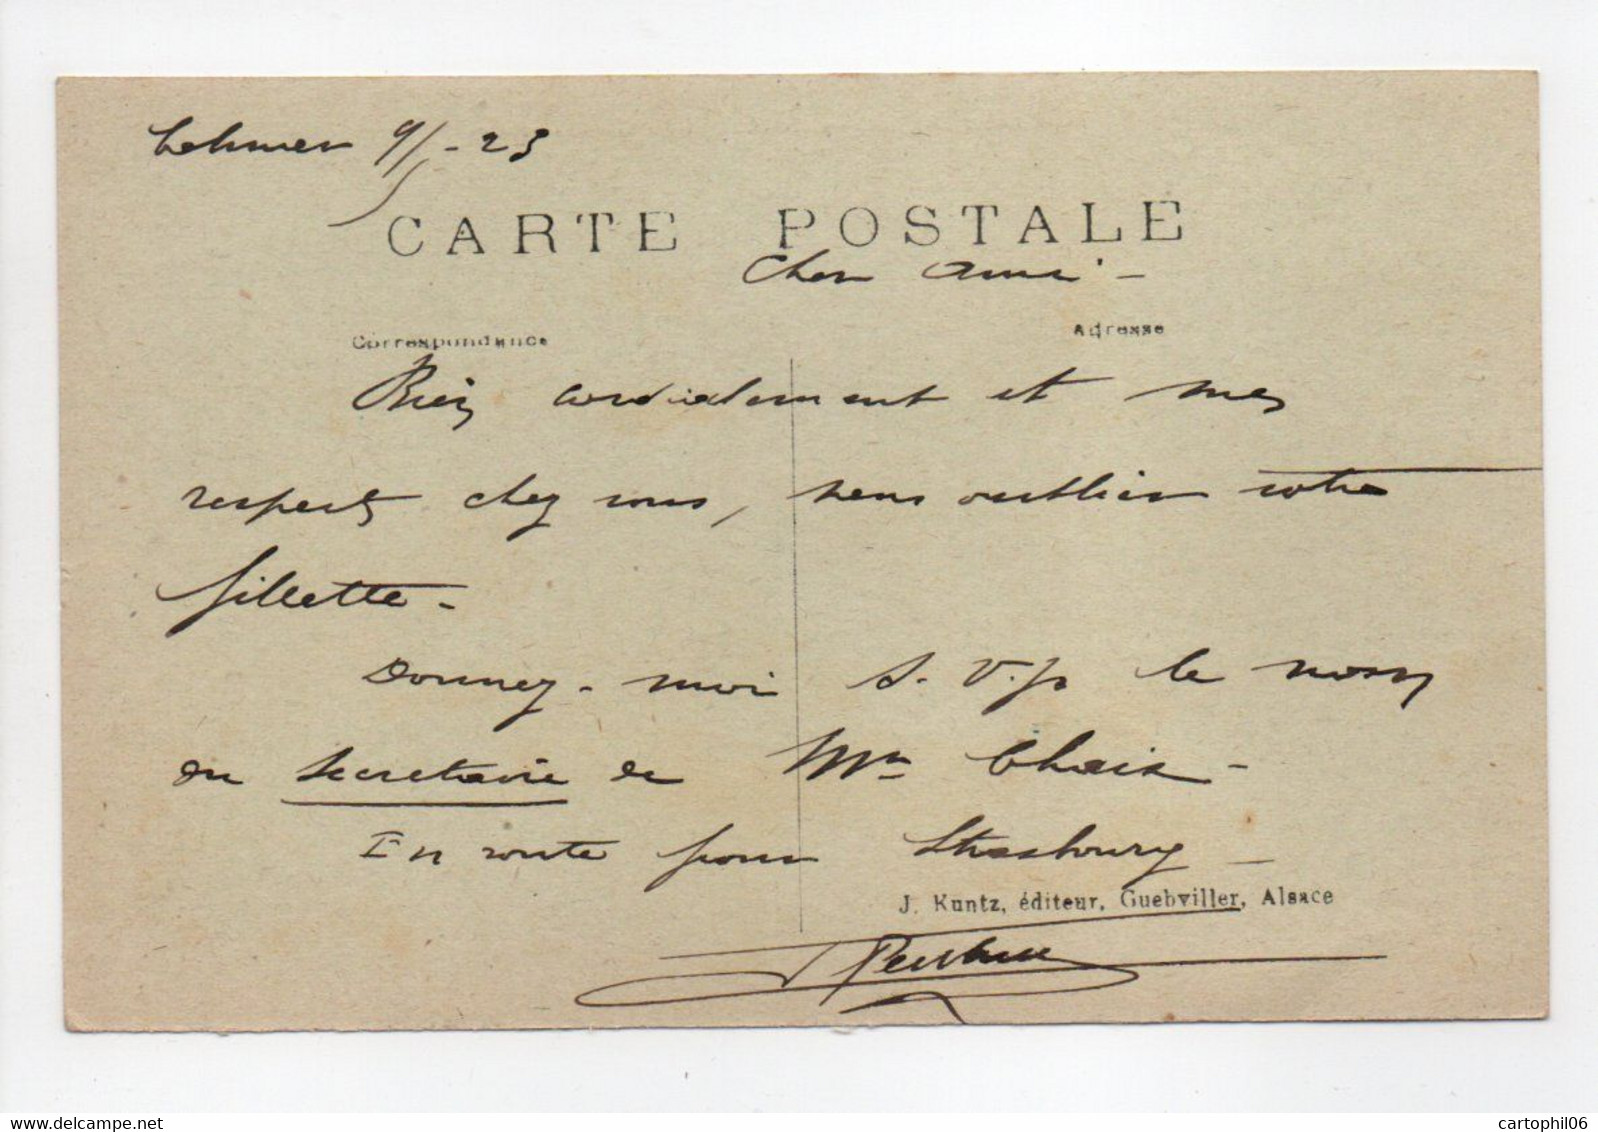 Colmar 9/5 - 23
CARTE POSTALE
Cher Ami -
Correspondance
Adresse
Bien cordialement et mes
respects chez vous, sans oublier votre
fillette -
Donnez-moi S.V.p le nom
du secrétaire de Mr Chaix -
En route pour Strasbourg -
J. Kuntz, éditeur, Guebviller, Alsace
cartophil06